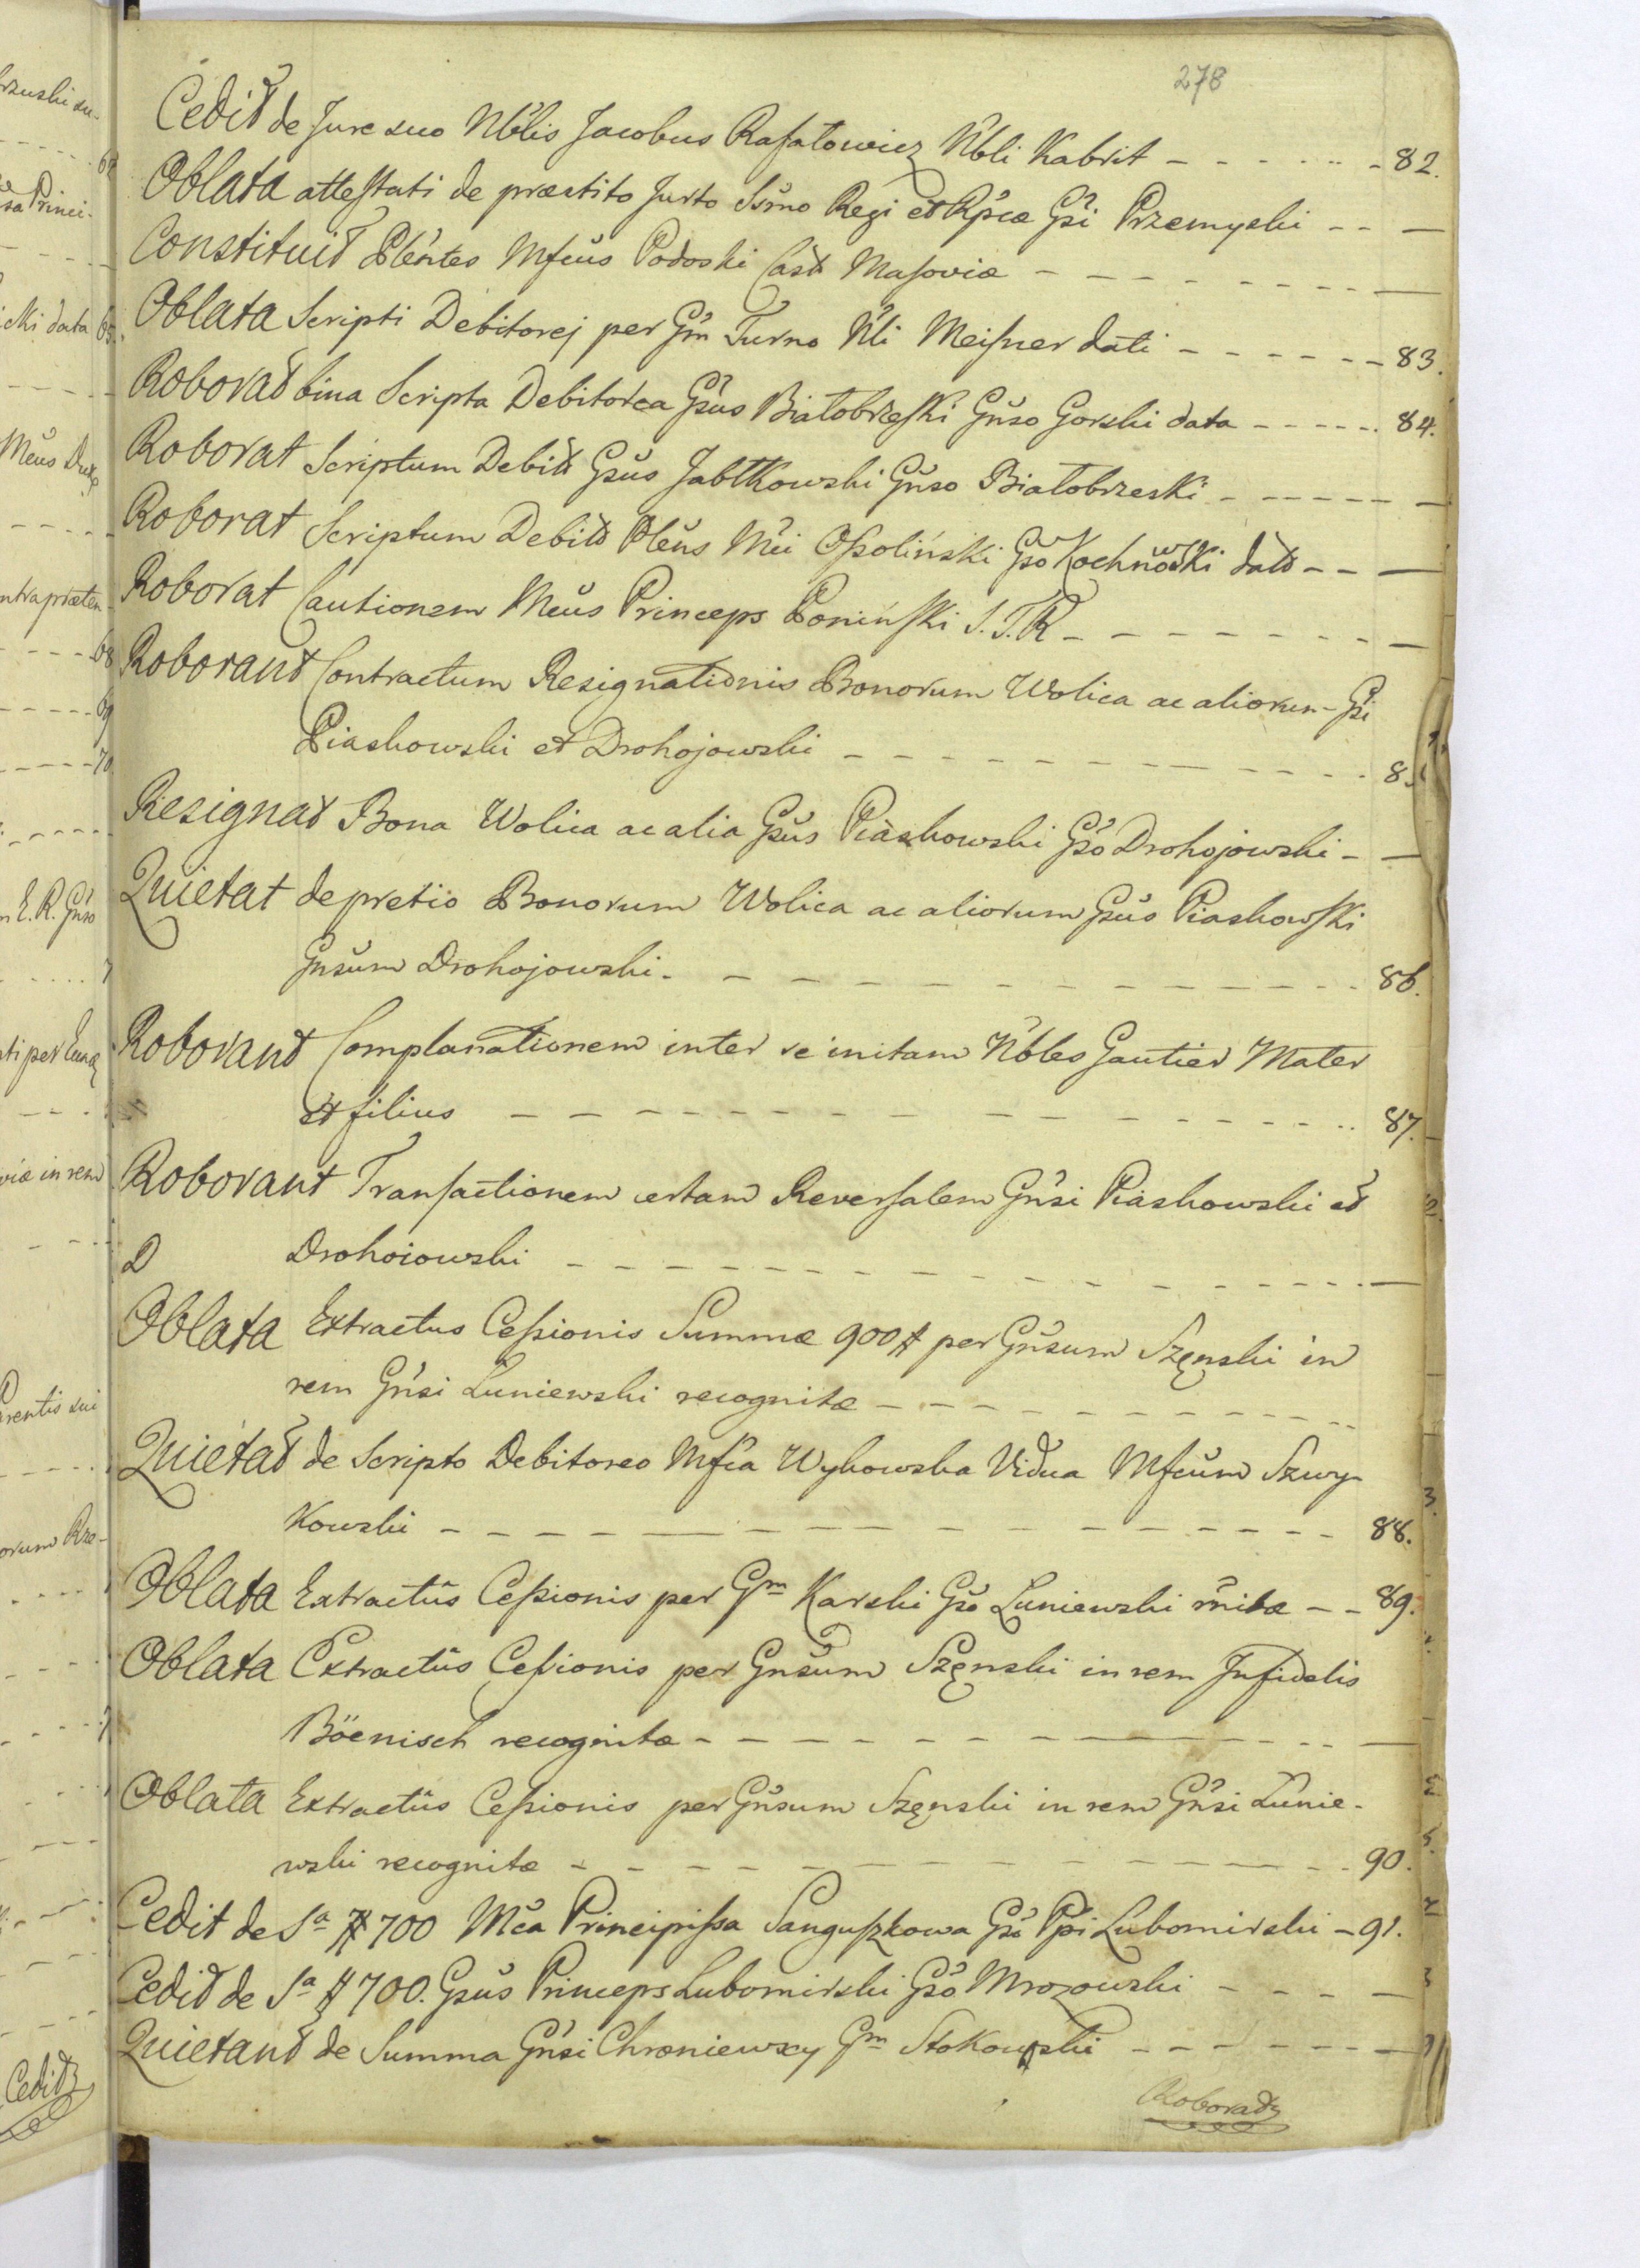 278
Cedit de Jure suo Nblis Jacobus Rafałowicz Nbli Kabrit - - - - - - 82.
Oblata attestati de præstito Jurto Ssmo Regi et Rpcæ Gsi Przemyski - - —
Constituit Plentes Mfcus Podoski Cast Masoviæ - - - - - - - —
Oblata Scripti Debitorej per Gm Turno Nli Meisner dati - - - - - - 83.
Roborat bina Scripta Debitorea Gsus Białobrzeski Gnso Gorski data - - - - - 84.
Roborat Scriptum Debit Gsus Jabłkowski Gnso Białobrzeski - - - - - - —
Roborat Scriptum Debit Plens Mci Ossoliński Gso Kochnowski dat - - —
Roborat Cautionem Mcus Princeps Poniński S. T. R - - - - - - - —
Roborant Contractum Resignationis Bonorum Wolica ac aliorum - Gsi
Piaskowski et Drohojowski - - - - - - - - - - - 8
Resignat Bona Wolica ac alia Gsus Piaskowski Gso Drohojowski - —
Quietat de pretio Bonorum Wolica ac aliorum Gsus Piaskowski
Gnsum Drohojowski. - - - - - - - - - - - 86.
Roborant Complanationem inter se initam Nbles Gautier Mater
et filius - - - - - - - - - - - - - 87.
Roborant Transactionem certam Reversalem Gnsi Piaskowski et
D Drohoiowski - - - - - - - - - - - - - —
Oblata Extractus Cessionis Summæ 900 # per Gnsum Szęnski in
rem Gnsi Łuniewski recognitæ - - - - - - - - - -
Quietat de Scripto Debitoreo Mfca Wyhowska Vidua Mfcum Szwy-
kowski - - - - - - - - - - - - - - - 88.
Oblata Extractus Cessionis per Gm Karski Gso Łuniewski rnitæ - - 89.
Oblata Extractus Cessionis per Gnsum Szęnski in rem Infidelis
Böenisch recognitæ - - - - - - - - - - - —
Oblata Extractus Cessionis per Gnsum Szęnski in rem Gnsi Łunie-
wski recognitæ - - - - - - - - - - - - 90.
Cedit de Sa # 700 Mca Principissa Sanguszkowa Gso Ppi Lubomirski - 91.
Cedit de Sa # 700. Gsus Princeps Lubomirski Gso Mrozowski - - - - —
Quietant de Summa Gnsi Chroniewscy Gm Stokowski - - - - - - —
Roborat